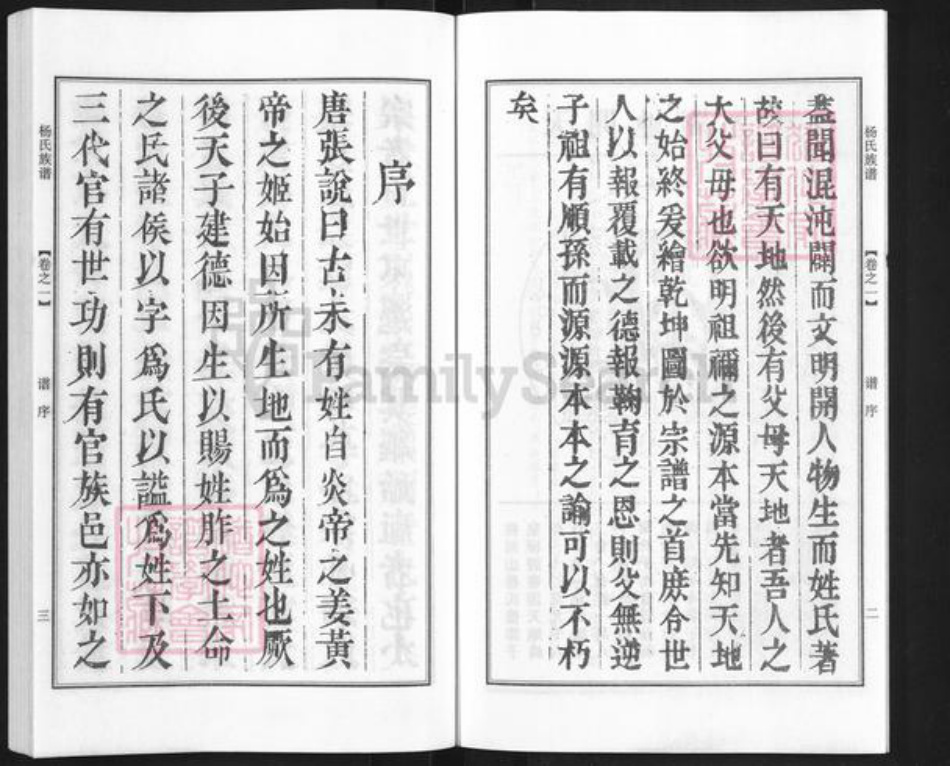 杨氏族谱 【卷之一】 谱序 二
盖聞混沌闢而文明開人物生而姓氏著
故曰有天地然後有父母天地者吾人之
大父母也欲明祖禰之源本當先知天地
之始終爰繪乾坤圖於宗譜之首庶令世
人以報覆載之德報鞠育之恩則父無逆
子祖有順孫而源源本本之論可以不朽
矣
序
唐張說曰古未有姓自炎帝之姜黃
帝之姬始因所生地而爲之姓也厥
後天子建德因生以賜姓胙之土命
之氏諸侯以字爲氏以諡爲姓下及
三代官有世功則有官族邑亦如之
杨氏族谱 【卷之一】 谱序 三
FamilySearch